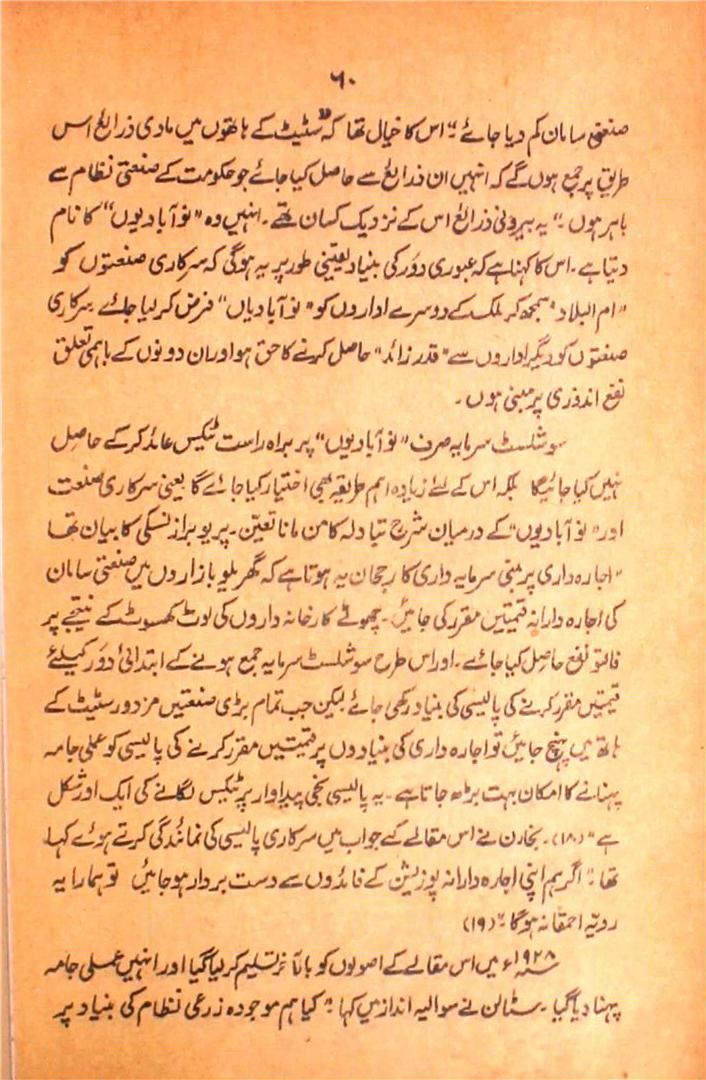 ۶۰
صنعتی سامان کم دیا جائے۔" اس کا خیال تھا کہ "سٹیٹ کے ہاتھوں میں مادی ذرائع اس
طریق پر جمع ہوں گے کہ انہیں ان ذرائع سے حاصل کیا جائے جو حکومت کے صنعتی نظام سے
باہر ہوں۔" یہ بیرونی ذرائع اس کے نزدیک کسان تھے۔ انہیں وہ "نو آبادیوں" کا نام
دیتا ہے۔ اس کا کہنا ہے کہ عبوری دَور کی بنیاد یقینی طور پر یہ ہو گی کہ سرکاری صنعتوں کو
"ام البلاد" سمجھ کر ملک کے دوسرے اداروں کو "نو آبادیاں" فرض کر لیا جائے سرکاری
صنعتوں کو دیگر اداروں سے "قدر زائد" حاصل کرنے کا حق ہو اور ان دونوں کے باہمی تعلق
نفع اندوزی پر مبنی ہوں۔
سوشلسٹ سرمایہ صرف "نو آبادیوں" پر براہ راست ٹیکس عائد کر کے حاصل
نہیں کیا جائیگا بلکہ اس کے لئے زیادہ اہم طریقہ بھی اختیار کیا جائے گا یعنی سرکاری صنعت
اور "نو آبادیوں" کے درمیان شرح تبادلہ کا من مانا تعین۔ پریوبرازنسکی کا بیان تھا
"اجارہ داری پر مبنی سرمایہ داری کا رجحان یہ ہوتا ہے کہ گھریلو بازاروں میں صنعتی سامان
کی اجارہ دارانہ قیمتیں مقرر کی جائیں۔ چھوٹے کارخانہ داروں کی لوٹ کھسوٹ کے نتیجے پر
فالتو نفع حاصل کیا جائے۔ اور اس طرح سوشلسٹ سرمایہ جمع ہونے کے ابتدائی دَور کیلئے
قیمتیں مقرر کرنے کی پالیسی کی بنیاد رکھی جائے لیکن جب تمام بڑی صنعتیں مزدور سٹیٹ کے
ہاتھ میں پہنچ جائیں تو اجارہ داری کی بنیادوں پر قیمتیں مقرر کرنے کی پالیسی کو عملی جامہ
پہنانے کا امکان بہت بڑھ جاتا ہے۔ یہ پالیسی نجی پیداوار پر ٹیکس لگانے کی ایک اور شکل
ہے" (۱۸)۔ بخارن نے اس مقالے کے جواب میں سرکاری پالیسی کی نمائندگی کرتے ہوئے کہا
تھا۔ "اگر ہم اپنی اجارہ دارانہ پوزیشن کے فائدوں سے دست بردار ہو جائیں تو ہمارا یہ
رویہ احمقانہ ہو گا۔" (۱۹)
۱۹۲۸ء میں اس مقالے کے اصولوں کو بالآخر تسلیم کر لیا گیا اور انہیں عملی جامہ
پہنا دیا گیا۔ سٹالن نے سوالیہ انداز میں کہا۔ "کیا ہم موجودہ زرعی نظام کی بنیاد پر